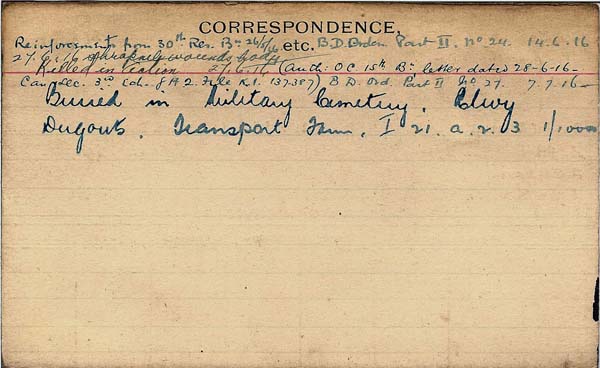 CORRESPONDENCE,
etc.
Reinforcement from 30th Res. Bn 26/5/16 B.D. Orders Part II. No 24. 14.6.16
27.6.16 wounds body
Killed in Action /6/16 (Auth: OC 15th Bn letter dated 28-6-16-
Can. Sec. 3rd Ech. File K.1. 137387) B.D. Ord. Part II No 27. 7.7.16-
Buried in Military Cemetery,
Dugouts. Transport Farm, I 21. a. 2. 3 1/10000